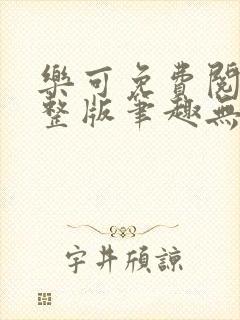 樂可免費閱
整版筆趣無
宇井頎諒